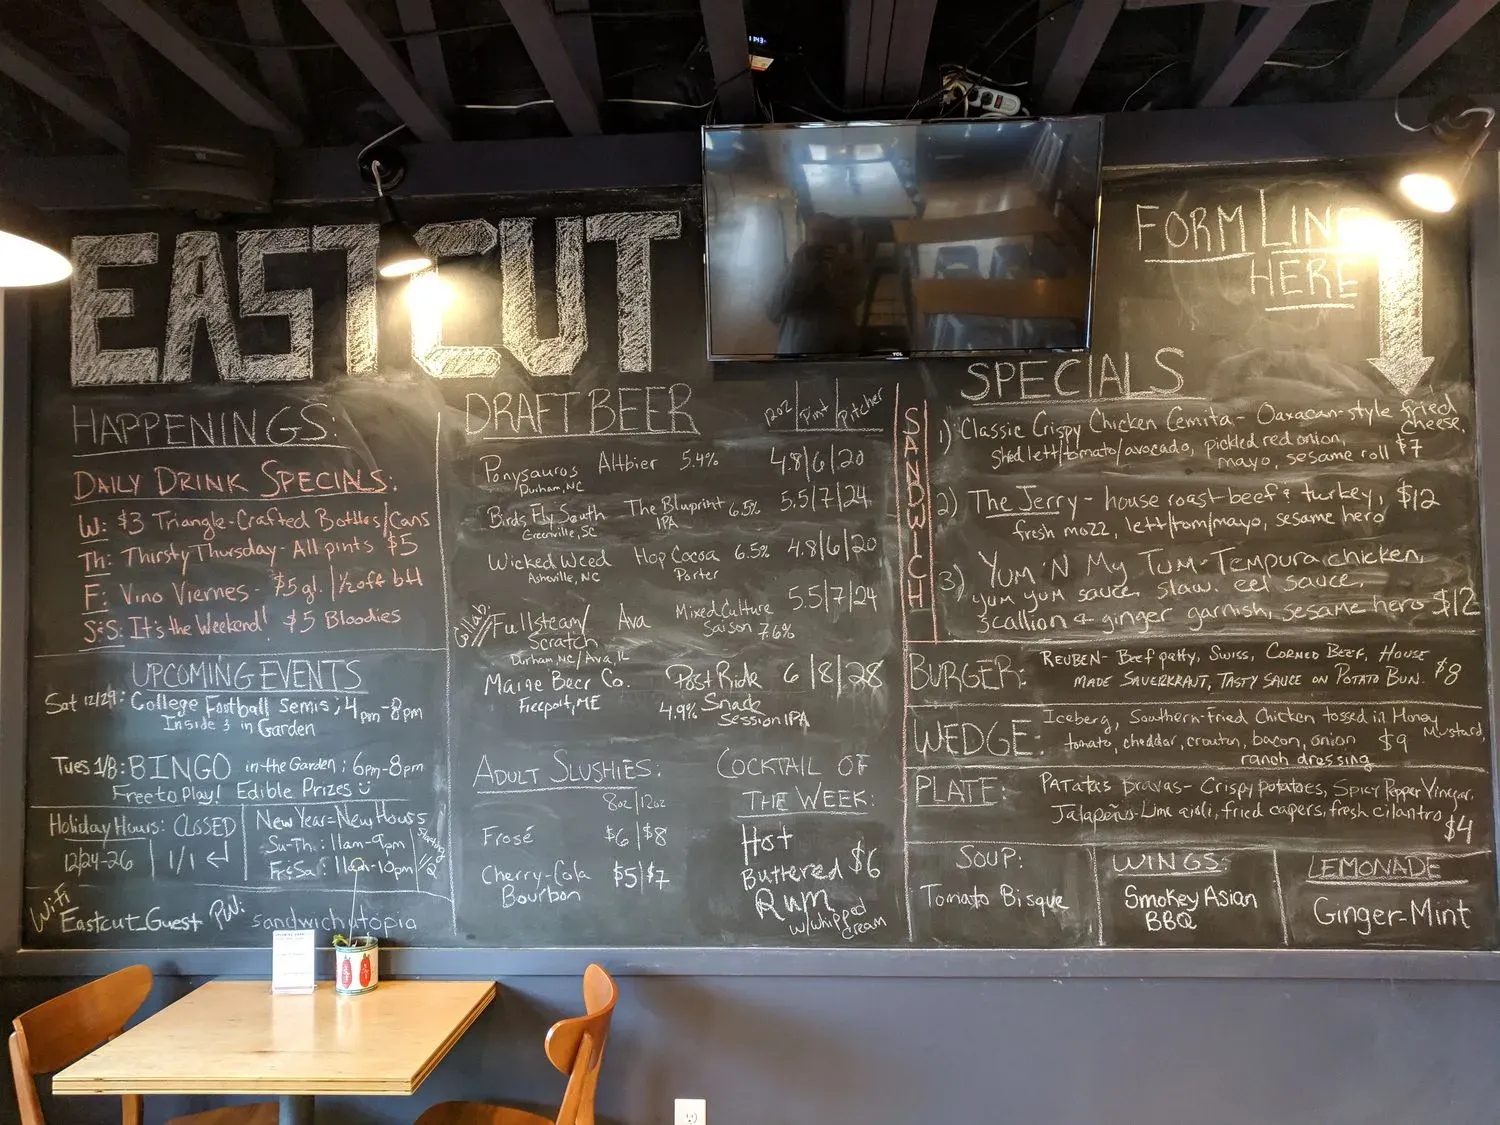 EASTCUT
FORM LINE
HERE
HAPPENINGS:
DAILY DRINK SPECIALS:
W: $3 Triangle-Crafted Bottles/Cans
Th: Thirsty Thursday - All pints $5
F: Vino Viernes - $5 gl. | ½ off btl
S&S: It's the Weekend! $5 Bloodies
UPCOMING EVENTS
Sat 12/29: College Football Semis; 4pm-8pm
Inside & in Garden
Tues 1/8: BINGO in-the-Garden; 6pm-8pm
Free to Play! Edible Prizes
Holiday Hours: CLOSED
12/24-26 | 1/1
New Year=New Hours
Su-Th: 11am-9pm
Fri&Sa: 11am-10pm
Starting
1/2
WiFi
Eastcut_Guest PW: sandwichutopia
DRAFT BEER
12oz/Pint/Pitcher
Ponysaurus Altbier 5.4% 4.8|6|20
Durham, NC
Birds Fly South The Blueprint 6.5% 5.5|7|24
Greenville, SC IPA
Wicked Weed Hop Cocoa 6.5% 4.8|6|20
Asheville, NC Porter
Collab:
Fullsteam/ Ava Mixed Culture 5.5|7|24
Scratch Saison 7.6%
Durham, NC/Ava, IL
Maine Beer Co. Post Ride 6|8|28
Freeport, ME 4.9% Snack
Session IPA
ADULT SLUSHIES:
8oz|12oz
Frosé $6|$8
Cherry-Cola $5|$7
Bourbon
COCKTAIL OF
THE WEEK:
Hot
Buttered $6
Rum
w/whipped
cream
SPECIALS
SANDWICH
1) Classic Crispy Chicken Cemita - Oaxacan-style fried cheese,
shed lett/tomato/avocado, pickled red onion,
mayo, sesame roll $7
2) The Jerry - house roast beef & turkey, $12
fresh mozz, lett/tom/mayo, sesame hero
3) Yum 'N My Tum - Tempura chicken,
yum yum sauce, slaw, eel sauce,
scallion & ginger garnish, sesame hero $12
BURGER: REUBEN - Beef patty, Swiss, Corned Beef, House
made Sauerkraut, Tasty Sauce on Potato Bun. $8
WEDGE: Iceberg, Southern-Fried Chicken tossed in Honey Mustard,
tomato, cheddar, crouton, bacon, onion $9
ranch dressing
PLATE: Patatas Bravas - Crispy potatoes, Spicy Pepper Vinegar,
Jalapeño-Lime aioli, fried capers, fresh cilantro
$4
SOUP:
Tomato Bisque
WINGS:
Smokey Asian
BBQ
LEMONADE
Ginger-Mint
TCL